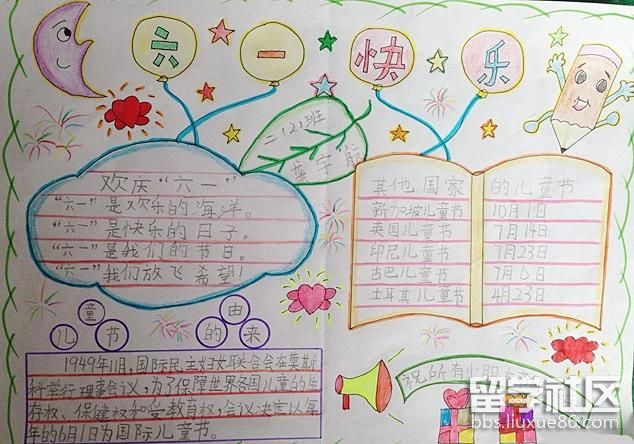 六一快乐
二(2)班
龚宇航
欢庆“六一”
“六一”是欢乐的海洋。
“六一”是快乐的日子。
“六一”是我们的节日。
“六一”我们放飞希望!
其他国家的儿童节
新加坡儿童节 10月1日
英国儿童节 7月14日
印尼儿童节 7月23日
古巴儿童节 7月6日
土耳其儿童节 4月23日
儿童节的由来
1949年11月,国际民主妇女联合会在莫斯
科举行理事会议,为了保障世界各国儿童的生
存权、保健权和受教育权,会议决定以每
年的6月1日为国际儿童节。
祝所有小朋友
留学社区
bbs.liuxue86.com